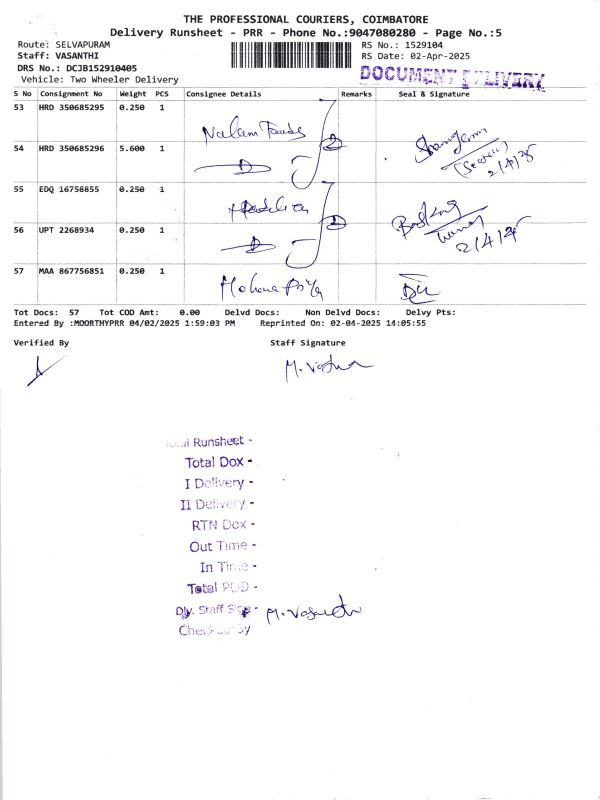 THE PROFESSIONAL COURIERS, COIMBATORE
Delivery Runsheet - PRR - Phone No.:9047080280 - Page No.:5
Route: SELVAPURAM
RS No.: 1529104
Staff: VASANTHI
RS Date: 02-Apr-2025
DRS No.: DCJB152910405
DOCUMENT DELIVERY
Vehicle: Two Wheeler Delivery
S No Consignment No Weight PCS Consignee Details Remarks Seal & Signature
53 HRD 350685295 0.250 1
Nalam Foods
2
54 HRD 350685296 5.600 1
2/4/25
55 EDQ 16758855 0.250 1
2
Booking
56 UPT 2268934 0.250 1
2/4/25
57 MAA 867756851 0.250 1 Mohana Priya
Tot Docs: 57 Tot COD Amt: 0.00 Delvd Docs: Non Delvd Docs: Delvy Pts:
Entered By :MOORTHYPRR 04/02/2025 1:59:03 PM Reprinted On: 02-04-2025 14:05:55
Verified By Staff Signature
Total Runsheet -
Total Dox -
I Delivery -
II Delivery -
RTN Dox -
Out Time -
In Time -
Total POD -
Dly. Staff Sign -
Checked By